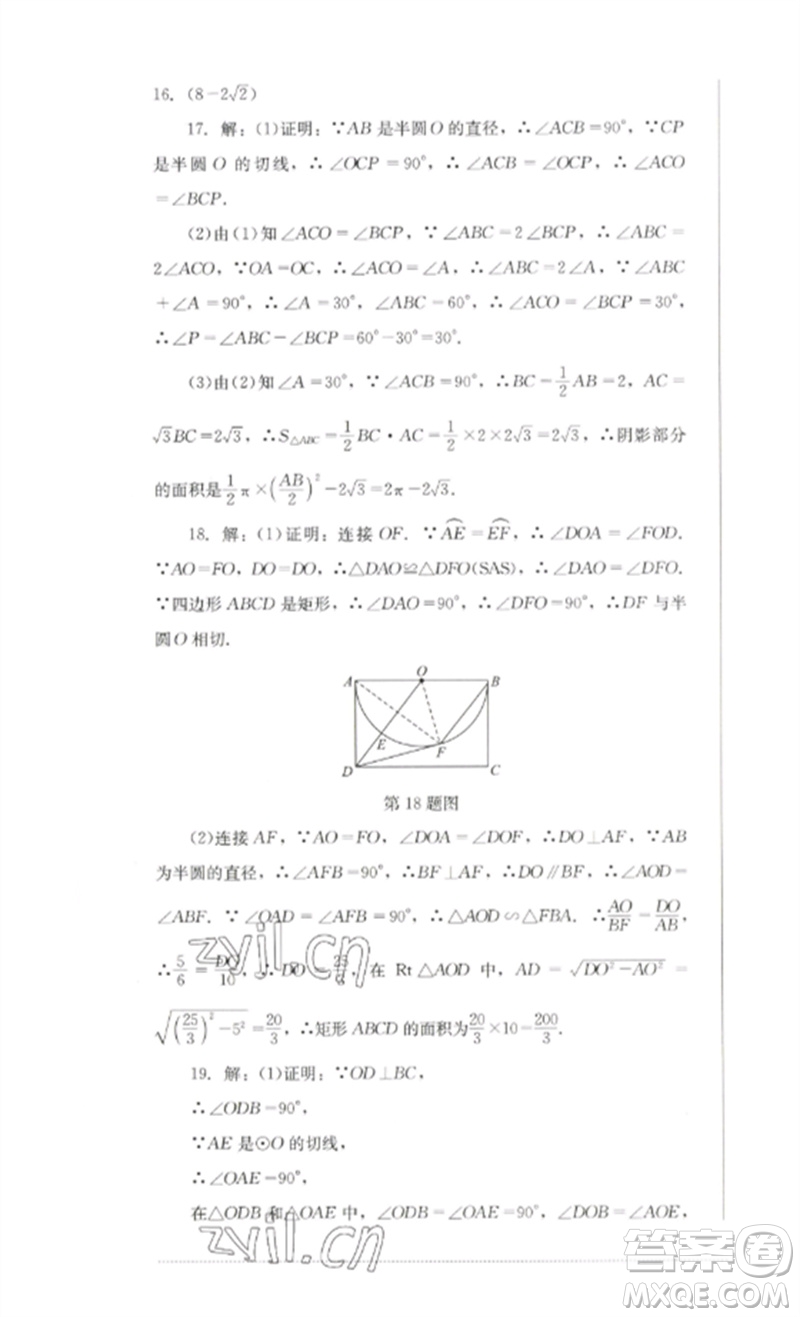 16. (8－2√2)
17. 解：(1)证明：∵AB 是半圆 O 的直径，∴∠ACB＝90°，∵CP
是半圆 O 的切线，∴∠OCP＝90°，∴∠ACB＝∠OCP，∴∠ACO
＝∠BCP.
(2)由(1)知∠ACO＝∠BCP，∵∠ABC＝2∠BCP，∴∠ABC＝
2∠ACO，∵OA＝OC，∴∠ACO＝∠A，∴∠ABC＝2∠A，∵∠ABC
＋∠A＝90°，∴∠A＝30°，∠ABC＝60°，∴∠ACO＝∠BCP＝30°，
∴∠P＝∠ABC－∠BCP＝60°－30°＝30°.
(3)由(2)知∠A＝30°，∵∠ACB＝90°，∴BC＝1/2 AB＝2，AC＝
√3BC＝2√3，∴S△ABC＝1/2 BC·AC＝1/2×2×2√3＝2√3，∴阴影部分
的面积是1/2 π×(AB/2)²－2√3＝2π－2√3.
18. 解：(1)证明：连接 OF. ∵A͡E＝E͡F，∴∠DOA＝∠FOD.
∵AO＝FO，DO＝DO，∴△DAO≌△DFO(SAS)，∴∠DAO＝∠DFO.
∵四边形 ABCD 是矩形，∴∠DAO＝90°，∴∠DFO＝90°，∴DF 与半
圆 O 相切.
A
O
B
E
F
D
C
第 18 题图
(2)连接 AF，∵AO＝FO，∠DOA＝∠DOF，∴DO⊥AF，∵AB
为半圆的直径，∴∠AFB＝90°，∴BF⊥AF，∴DO∥BF，∴∠AOD＝
∠ABF. ∵∠OAD＝∠AFB＝90°，∴△AOD∽△FBA. ∴AO/BF＝DO/AB，
∴5/6＝DO/10，∴DO＝25/3，在 Rt△AOD 中，AD＝√(DO²－AO²)＝
√((25/3)²－5²)＝20/3，∴矩形 ABCD 的面积为20/3×10＝200/3.
19. 解：(1)证明：∵OD⊥BC，
∴∠ODB＝90°，
∵AE 是⊙O 的切线，
∴∠OAE＝90°，
在△ODB 和△OAE 中，∠ODB＝∠OAE＝90°，∠DOB＝∠AOE，
zyjl.cn
zyjl.cn
答案圈
MXQE.COM